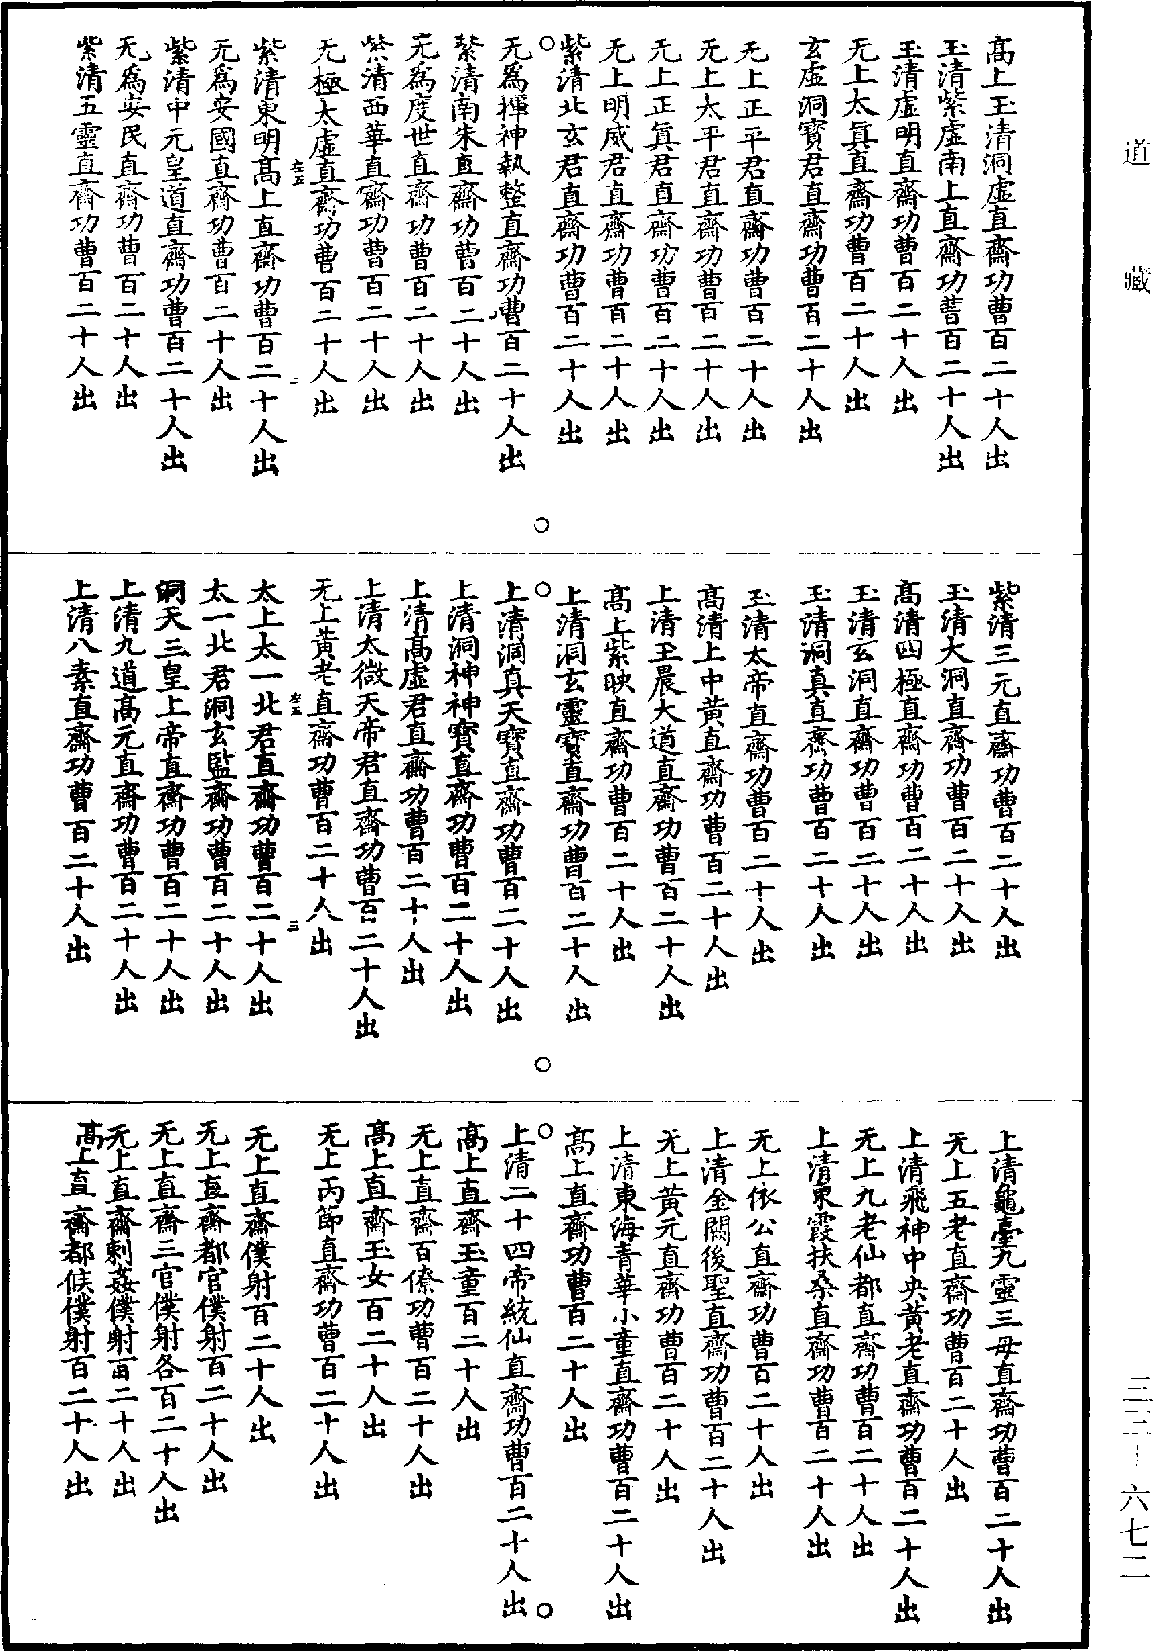 道藏
三三—六七二
高上玉清洞虛直齋功曹百二十人出
玉清紫虛南上直齋功曹百二十人出
玉清虛明直齋功曹百二十人出
无上太真直齋功曹百二十人出
玄虛洞寶君直齋功曹百二十人出
无上正平君直齋功曹百二十人出
无上太平君直齋功曹百二十人出
无上正真君直齋功曹百二十人出
无上明威君直齋功曹百二十人出
紫清北玄君直齋功曹百二十人出
无為揮神執整直齋功曹百二十人出
紫清南朱直齋功曹百二十人出
无為度世直齋功曹百二十人出
紫清西華直齋功曹百二十人出
无極太虛直齋功曹百二十人出
左五 二
紫清東明高上直齋功曹百二十人出
无為安國直齋功曹百二十人出
紫清中元皇道直齋功曹百二十人出
无為安民直齋功曹百二十人出
紫清五靈直齋功曹百二十人出
紫清三元直齋功曹百二十人出
玉清大洞直齋功曹百二十人出
高清四極直齋功曹百二十人出
玉清玄洞直齋功曹百二十人出
玉清洞真直齋功曹百二十人出
玉清太帝直齋功曹百二十人出
高清上中黃直齋功曹百二十人出
上清玉晨大道直齋功曹百二十人出
高上紫映直齋功曹百二十人出
上清洞玄靈寶直齋功曹百二十人出
上清洞真天寶直齋功曹百二十人出
上清洞神神寶直齋功曹百二十人出
上清高虛君直齋功曹百二十人出
上清太微天帝君直齋功曹百二十人出
无上黃老直齋功曹百二十人出
左五 三
太上太一北君直齋功曹百二十人出
太一北君洞玄監齋功曹百二十人出
洞天三皇上帝直齋功曹百二十人出
上清九道高元直齋功曹百二十人出
上清八素直齋功曹百二十人出
上清龜臺九靈三母直齋功曹百二十人出
无上五老直齋功曹百二十人出
上清飛神中央黃老直齋功曹百二十人出
无上九老仙都直齋功曹百二十人出
上清東霞扶桑直齋功曹百二十人出
无上依公直齋功曹百二十人出
上清金闕後聖直齋功曹百二十人出
无上黃元直齋功曹百二十人出
上清東海青華小童直齋功曹百二十人出
高上直齋功曹百二十人出
上清二十四帝統仙直齋功曹百二十人出
高上直齋玉童百二十人出
无上直齋百僚功曹百二十人出
高上直齋玉女百二十人出
无上丙節直齋功曹百二十人出
无上直齋僕射百二十人出
无上直齋都官僕射百二十人出
无上直齋三官僕射各百二十人出
无上直齋刺姦僕射百二十人出
高上直齋都候僕射百二十人出